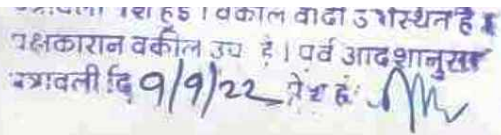 पत्रावली पेश हुई । वकील वादी उपस्थित है ।
पक्षकारान वकील उप है । पूर्व आदेशानुसार
पत्रावली दि 9/9/22 पेश हो